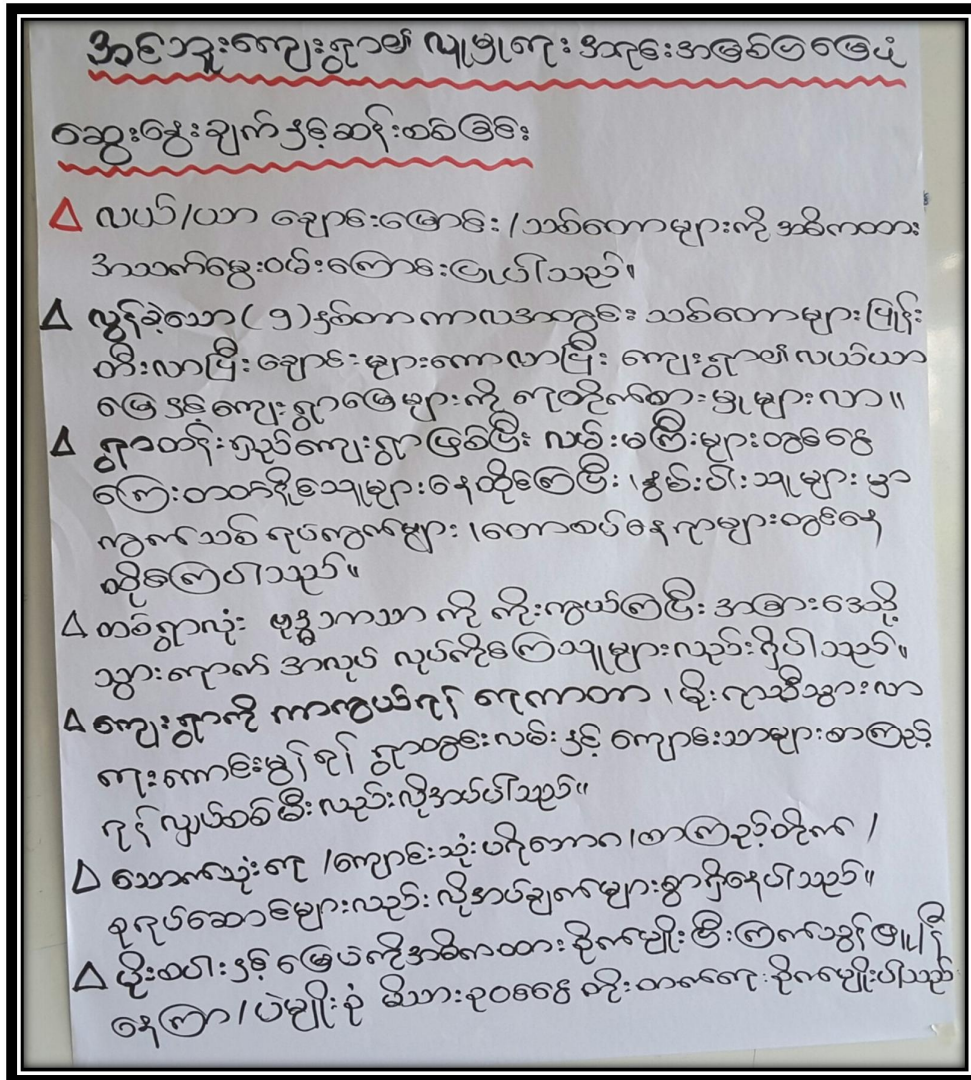 အင်ဘူးကျေးရွာ၏ လူမှုရေး အရင်းအမြစ်ပြမြေပုံ
ဆွေးနွေးချက်နှင့်ဆန်းစစ်ခြင်း
လယ်/ယာ ချောင်းမြောင်း /သစ်တောများကို အဓိကထား
အသက်မွေးဝမ်းကြောင်းပြုပါသည်။
လွန်ခဲ့သော(၅)နှစ်တာကာလအတွင်း သစ်တောများပြုန်း
တီးလာပြီး ချောင်းများကောလာပြီး ကျေးရွာ၏လယ်ယာ
မြေနှင့်ကျေးရွာမြေများကို ရေတိုက်စားမှုများလာ။
ရွာတန်းရှည်ကျေးရွာဖြစ်ပြီး လမ်းမကြီးများတွင်ငွေ
ကြေးတတ်နိုင်သူများနေထိုင်ကြပြီး၊ နွမ်းပါးသူများမှာ
ကွက်သစ် ရပ်ကွက်များ ၊တောစပ်နေရာများတွင်နေ
ထိုင်ကြပါသည်။
တစ်ရွာလုံး ဗုဒ္ဓဘာသာ ကို ကိုးကွယ်ကြပြီး အခြားဒေသသို့
သွားရောက် အလုပ် လုပ်ကိုင်ကြသူများလည်းရှိပါသည်။
ကျေးရွာကို ကာကွယ်ရန် ရေကာတာ ၊ မိုးရာသီသွားလာ
ရေးကောင်းမွန်ရန် ရွာတွင်းလမ်းနှင့် ကျောင်းသားများစာကြည့်
ရန် လျှပ်စစ်မီးလည်းလိုအပ်ပါသည်။
သောက်သုံးရေ /ကျောင်းသုံးပရိဘောဂ /စာကြည့်တိုက် /
စုရပ်ဆောင်များလည်း လိုအပ်ချက်များစွာရှိနေပါသည်။
မိုးစပါးနှင့် မြေပဲကိုအဓိကထားစိုက်ပျိုးပြီး ကြက်သွန်ဖြူ/နီ
နေကြာ/ပဲမျိုးစုံ မိသားစုဝင်ငွေ တိုးတက်ရေး စိုက်ပျိုးပါသည်